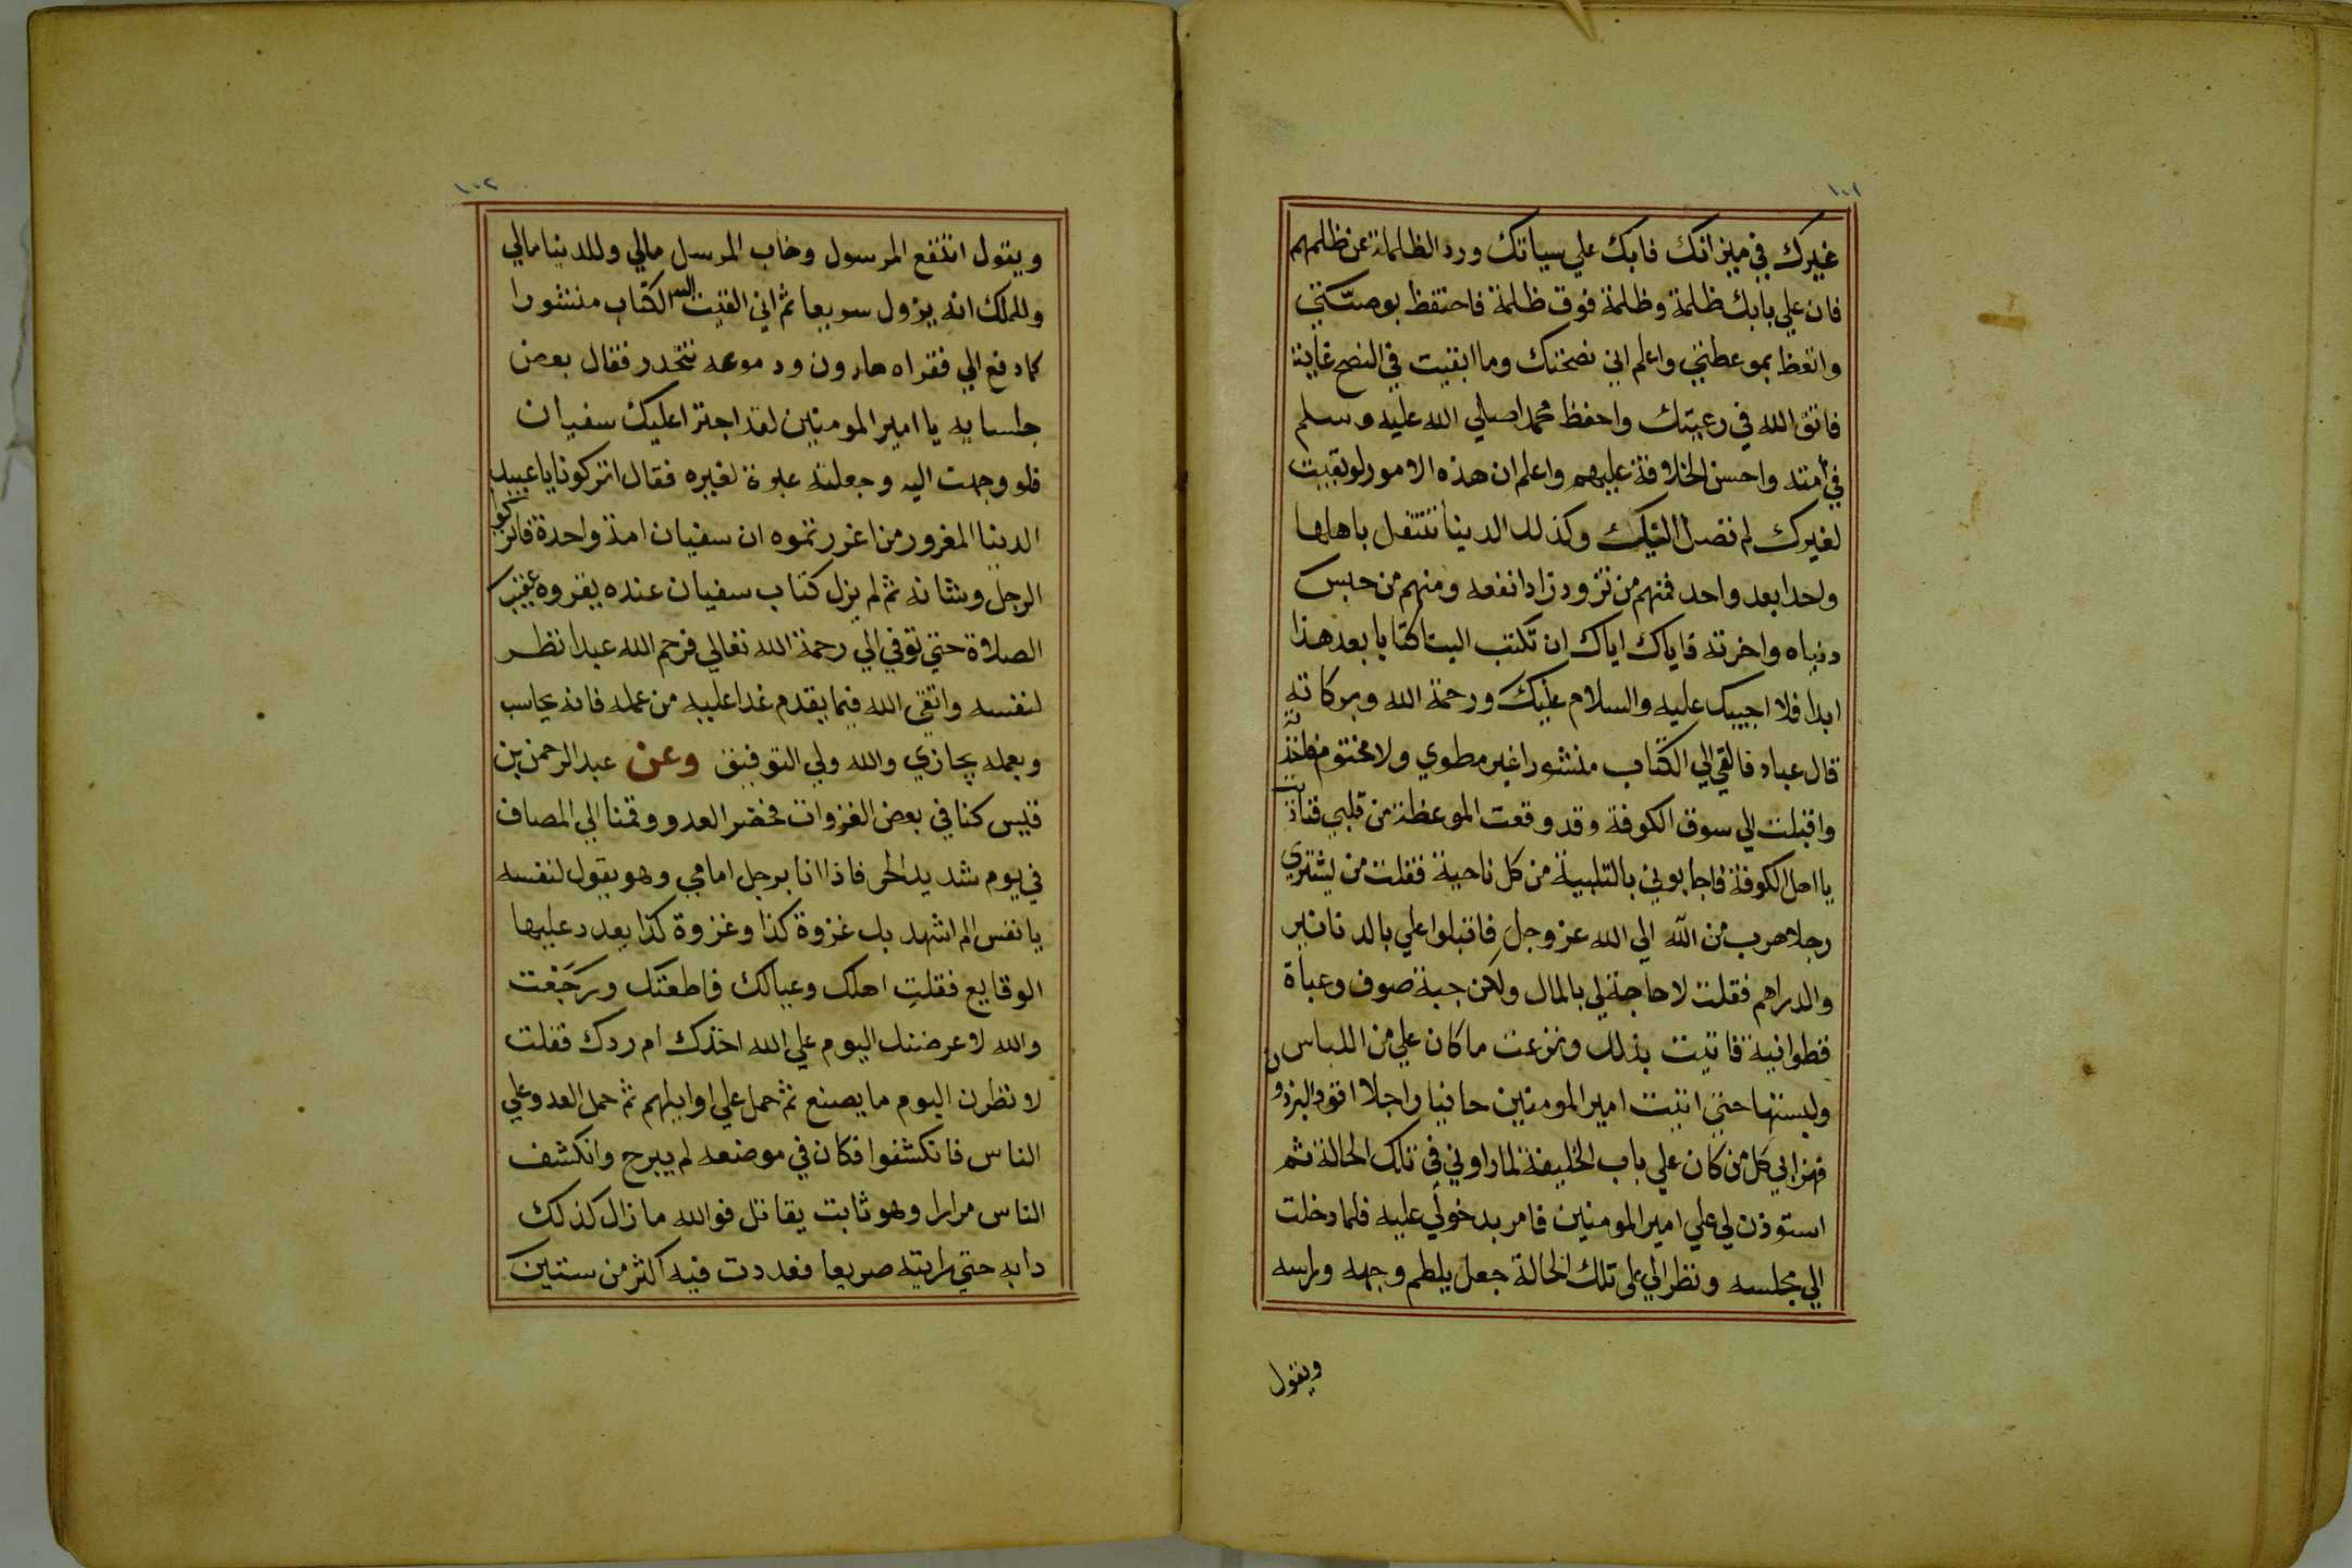 ١٠١
غيرك في ميزانك فابك علي سياتك ورد الظلامة عن ظلمهم
فان علي بابك ظلمة وظلمة فوق ظلمة فاحتفظ بوصيتي
واتعظ بموعظتي واعلم اني نصحتك وما ابقيت في النصح غاية
فاتق الله في رعيتك واحفظ محمدا صلي الله عليه وسلم
في أمته واحسن الخلافة عليهم واعلم ان هذه الامور لو بقيت
لغيرك لم تصل اليك وكذلك الدينا تنتقل باهلها
واحدا بعد واحد فمنهم من تزود زادا نفعه ومنهم من حبس
دنياه واخرته فاياك اياك ان تكتب الينا كتابا بعد هذا
ابدا فلا اجيبك عليه والسلام عليك ورحمة الله وبركاته
قال عباد فالقي الي الكتاب منشورا غير مطوي ولا مختوم فاخذته
واقبلت الي سوق الكوفة وقد وقعت الموعظة من قلبي فناديت
يا اهل الكوفة فاجابوني بالتلبية من كل ناحية فقلت من يشتري
رجلا هرب من الله الي الله عز وجل فاقبلوا علي بالدنانير
والدراهم فقلت لا حاجة لي بالمال ولكن جبة صوف وعباة
قطوانية فاتيت بذلك ونزعت ما كان علي من اللباس
ولبستها حتي اتيت امير المومنين حافيا راجلا اقود البرذون
فهزا بي كل من كان علي باب الخليفة لما راوني في تلك الحالة ثم
استوذن لي علي امير المومنين فامر بدخولي عليه فلما دخلت
الي مجلسه ونظر الي علي تلك الحالة جعل يلطم وجهه وراسه
ويقول
١٠٢
ويقول انتفع المرسول وخاب المرسل مالي وللدينا مالي
وللملك انه يزول سريعا ثم اني القيت اليه الكتاب منشورا
كما دفع الي فقراه هارون ودموعه تتحدر فقال بعض
جلسايه يا امير المومنين لقد اجترا عليك سفيان
فلو وجهت اليه وجعلته عبرة لغيره فقال اتركونا يا عبيد
الدينا المغرور من اغررتموه ان سفيان امة واحدة فاتركوا
الرجل وشانه ثم لم يزل كتاب سفيان عنده يقروه عقيب
الصلاة حتي توفي الي رحمة الله تعالي فرحم الله عبدا نظر
لنفسه واتقي الله فيما يقدم غدا عليه من عمله فانه يحاسب
وبعمله يجازي والله ولي التوفيق وعن عبد الرحمن بن
قيس كنا في بعض الغزوات فحضر العدو وقمنا الي المصاف
في يوم شديد الحر فاذا انا برجل امامي وهو يقول لنفسه
يا نفس الم اشهد بك غزوة كذا وغزوة كذا بعدد عليها
الوقايع فقلتِ اهلك وعيالك فاطعتك ورجعت
والله لاعرضنك اليوم علي الله اخذك ام ردك فقلت
لانظرن اليوم ما يصنع ثم حمل علي اوايلهم ثم حمل العدو علي
الناس فانكشفوا فكان في موضعه لم يبرح وانكشف
الناس مرارا وهو ثابت يقاتل فوالله ما زال كذلك
دابه حتي رايته صريعا فعددت فيه اكثر من ستين